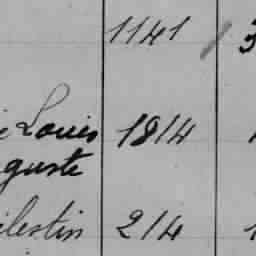 1141
Louis 1814
guste
lestin 214